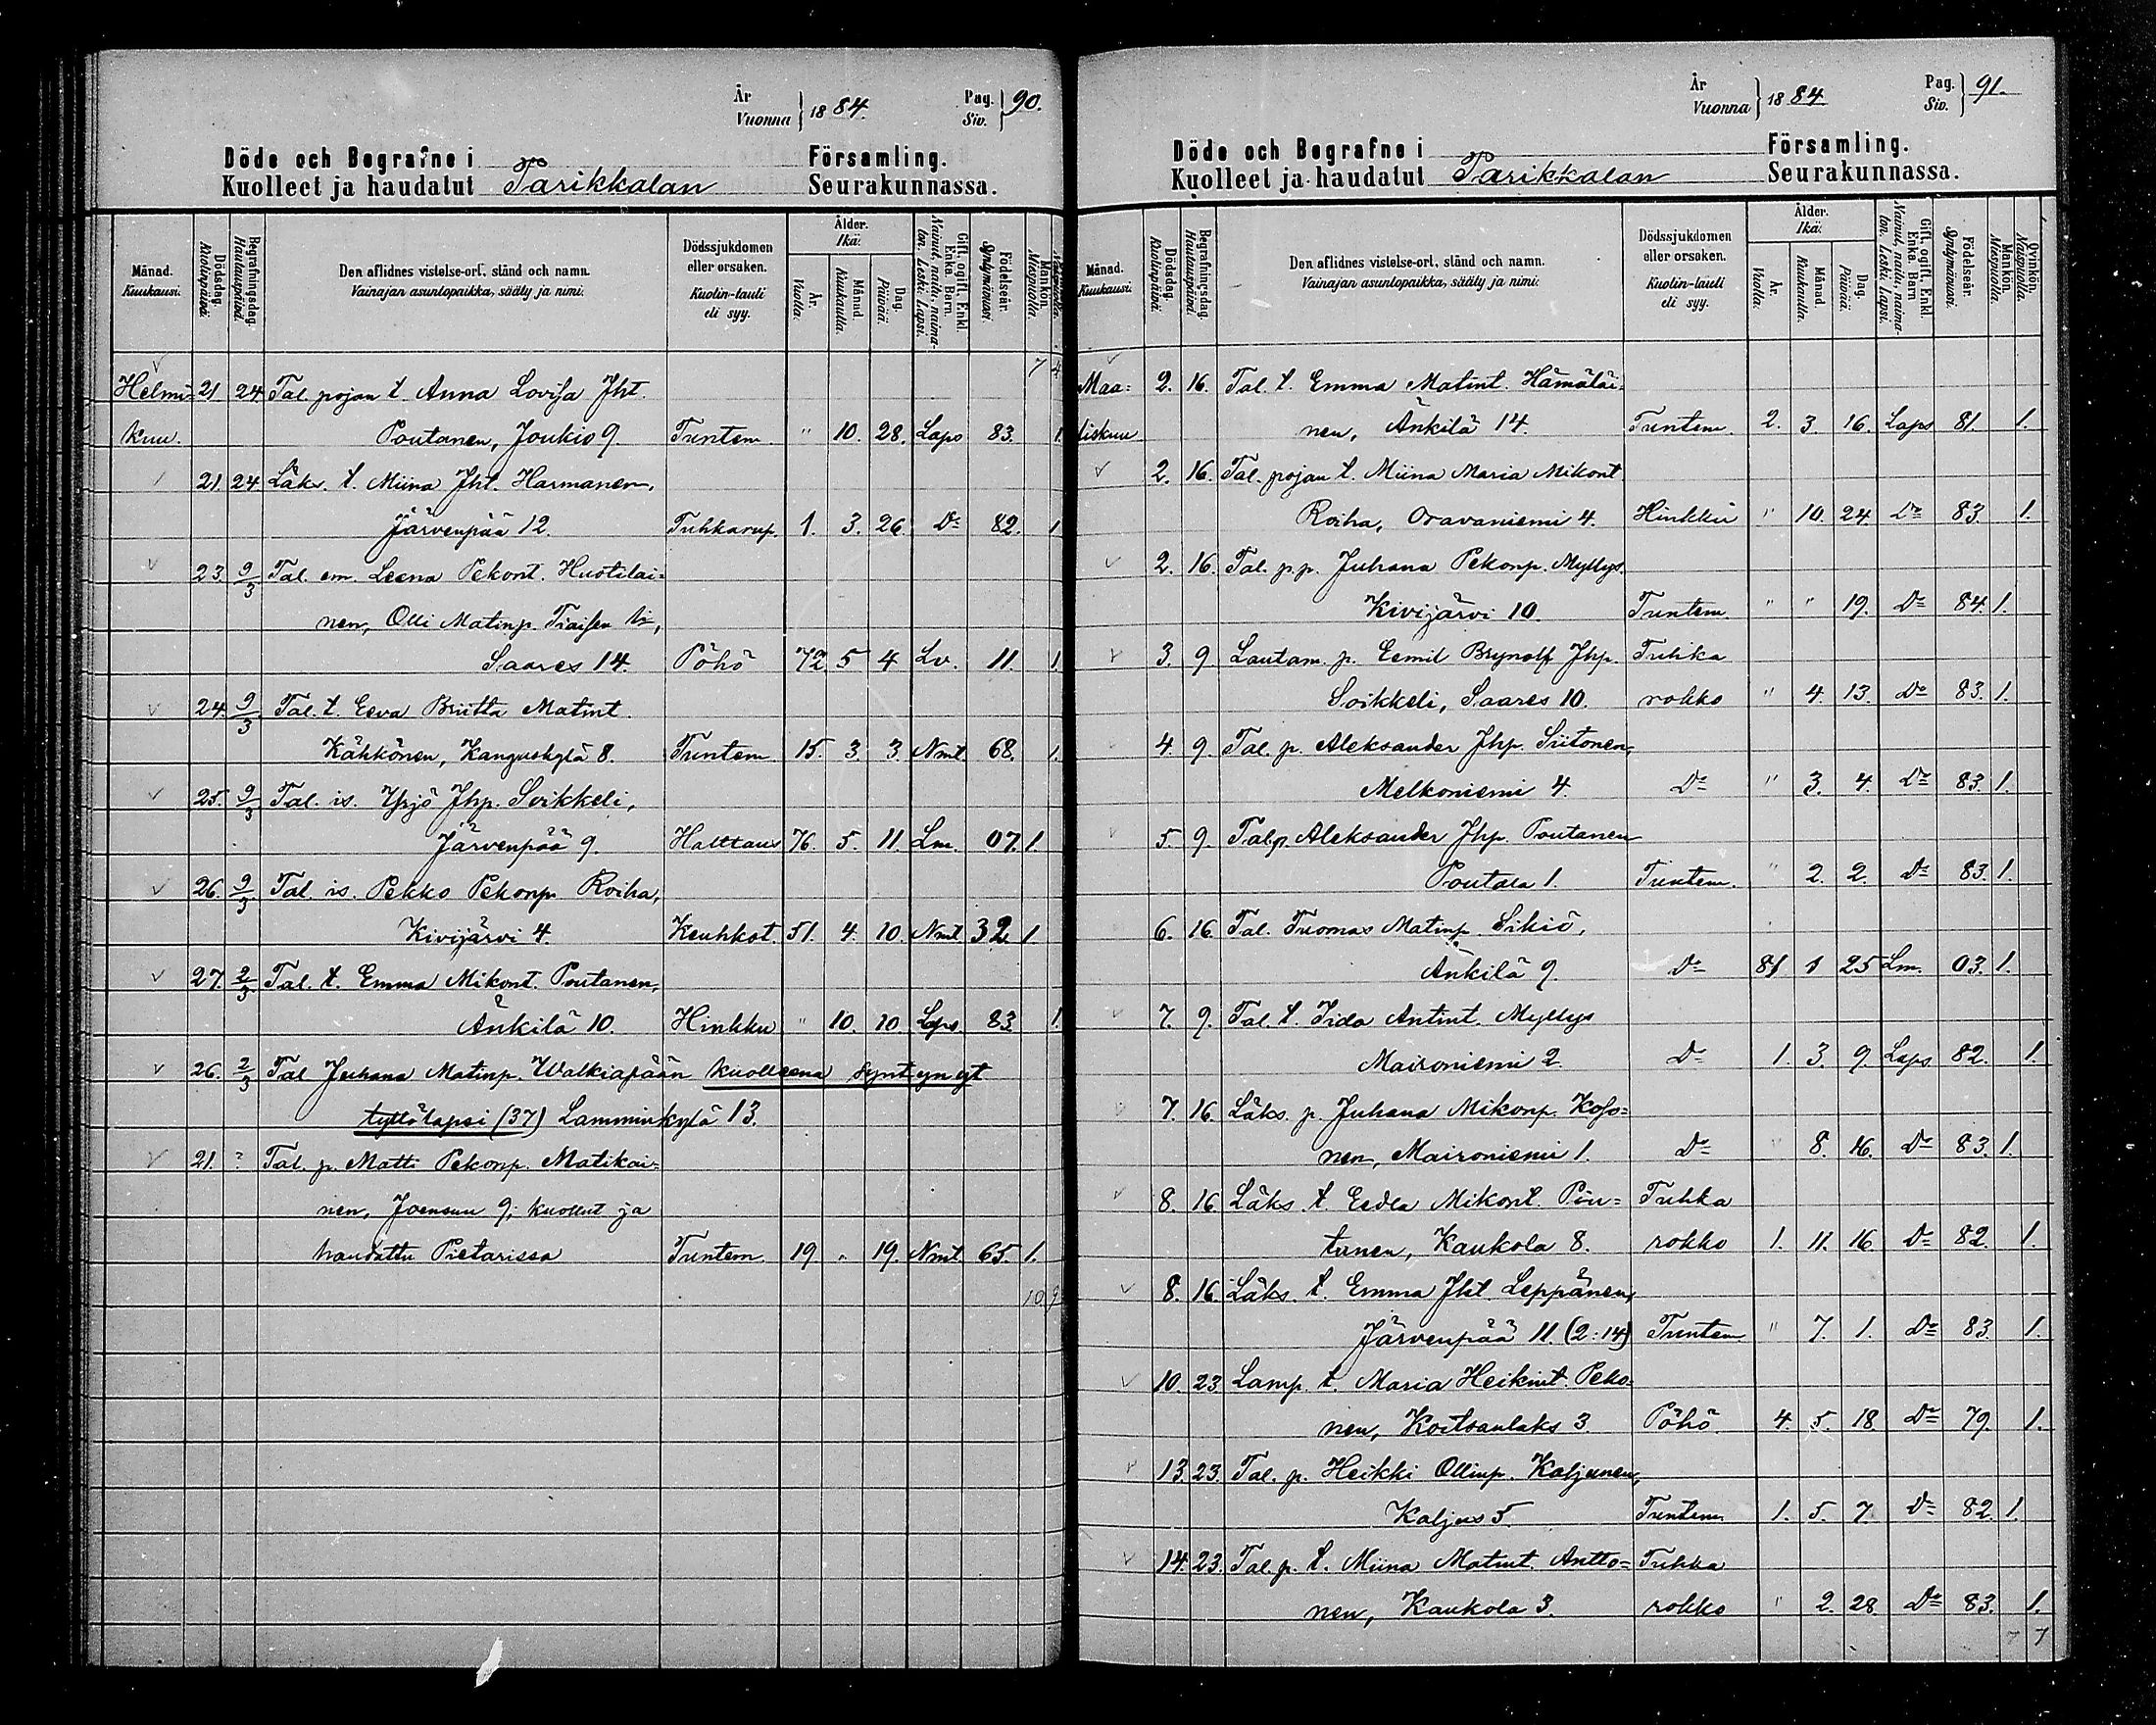 År
Vuonna } 1884.
Pag.
Siv. } 90.
Döde och Begrafne i Församling.
Kuolleet ja haudatut Parikkalan Seurakunnassa.
Månad. Kuukausi.
Dödsdag. Kuolinpäivä.
Begrafningsdag. Hautauspäivä.
Den aflidnes vistelse-ort, stånd och namn.
Vainajan asuntopaikka, sääty ja nimi.
Dödssjukdomen eller orsaken.
Kuolin-tauti eli syy.
Ålder. Ikä:
År. Vuotta.
Månad. Kuukautta.
Dag. Päivää.
Gift, ogift, Enkl. Enka. Barn.
Nainut, naitu, naimaton. Leski. Lapsi.
Födelseår. Syntymävuosi.
Mankön. Miespuolia.
7 4
Helmi= 21 24 Tal. pojan t. Anna Lovisa Jht.
kuu. Poutanen, Joukio 9. Tuntem. " 10. 28. Laps 83. 1.
21 24 Läks. t. Miina Jht. Harmanen,
Järvenpää 12. Tuhkarup. 1. 3. 26. Do 82. 1
23. 9/3 Tal. em. Leena Pekont. Huotilai=
nen, Olli Matinp. Tiaisen
Saares 14. Pöhö 72 5 4 Lv. 11. 1.
24. 9/3 Tal. t. Eeva Briitta Matint.
Kähkönen, Kanguskylä 8. Tuntem. 15. 3. 3. Nmt 68. 1.
25. 9/3 Tal. is. Yrjö Jhp. Soikkeli,
Järvenpää 9. Halttaus 76. 5. 11. Lm. 07. 1.
26. 9/3 Tal. is. Pekko Pekonp. Roiha,
Kivijärvi 4. Keuhkot. 51. 4. 10. Nmt 32 1.
27. 2/3 Tal. t. Emma Mikont. Poutanen,
Änkilä 10. Hinkku " 10. 10. Laps. 83 1.
26. 2/3 Tal Juhana Matinp. Walkiapään kuolleena syntynyt
tyttölapsi (37) Lamminkylä 13.
21. ? Tal. p. Matti Pekonp. Matikai=
nen, Joensuu 9; kuollut ja
haudattu Pietarissa Tuntem. 19. " 19. Nmt. 65. 1.
10 9
År
Vuonna } 1884
Pag.
Siv. } 91.
Döde och Begrafne i Församling.
Kuolleet ja haudatut Parikkalan Seurakunnassa.
Månad. Kuukausi.
Dödsdag. Kuolinpäivä.
Begrafningsdag. Hautauspäivä.
Den aflidnes vistelse-ort, stånd och namn.
Vainajan asuntopaikka, sääty ja nimi:
Dödssjukdomen eller orsaken.
Kuolin-tauti eli syy.
Ålder. Ikä:
År. Vuotta.
Månad. Kuukautta.
Dag. Päivää.
Gift, ogift, Enkl. Enka. Barn
Nainut, naitu, naimaton. Leski. Lapsi.
Födelseår. Syntymävuosi.
Mankön. Miespuolia.
Qvinkön. Naispuolia.
Maa= 2. 16. Tal. t. Emma Matint. Hämäläi=
liskuu nen, Änkilä 14. Tuntem. 2. 3. 16. Laps 81. 1.
2. 16. Tal. pojan t. Miina Maria Mikont
Roiha, Oravaniemi 4. Hinkku " 10. 24. Do 83. 1.
2. 16. Tal. p.p. Juhana Pekonp. Myllys.
Kivijärvi 10. Tuntem. " " 19. Do 84. 1.
3. 9 Lautam. p. Eemil Brynolf Jhp. Tuhka
Soikkeli, Saares 10. rokko " 4. 13. Do 83. 1.
4. 9. Tal. p. Aleksander Jhp. Siitonen,
Melkoniemi 4. Do " 3. 4. Do 83. 1.
5. 9. Tal. p. Aleksander Jhp. Poutanen
Poutala 1. Tuntem. " 2. 2. Do 83. 1.
6. 16. Tal. Tuomas Matinp. Sikiö,
Änkilä 9. Do 81 1 25 Lm. 03. 1.
7. 9. Tal. t. Iida Antint. Myllys
Maironiemi 2. Do 1. 3. 9. Laps 82. 1.
7. 16. Läks. p. Juhana Mikonp. Koso=
nen, Maironiemi 1. Do " 8. 16. Do 83. 1.
8. 16 Läks. t. Eedla Mikont. Pou= Tuhka
tanen, Kaukola 8. rokko 1. 11. 16. Do 82. 1.
8. 16. Läks. t. Emma Jht. Leppänen,
Järvenpää 11. (2:14) Tuntem " 7. 1. Do 83. 1.
10. 23. Lamp. t. Maria Heikint. Peko=
nen, Koitsanlaks 3. Pöhö. 4. 5. 18. Do 79. 1.
13. 23. Tal. p. Heikki Ollinp. Kaljunen,
Kaljus 5. Tuntem 1. 5. 7. Do 82. 1.
14. 23. Tal. p. t. Miina Matint. Antto= Tuhka
nen, Kaukola 3. rokko " 2. 28. Do 83. 1.
7 7